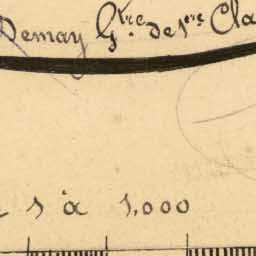 Demay G.tre de 1ère Cla
1 à 1,000